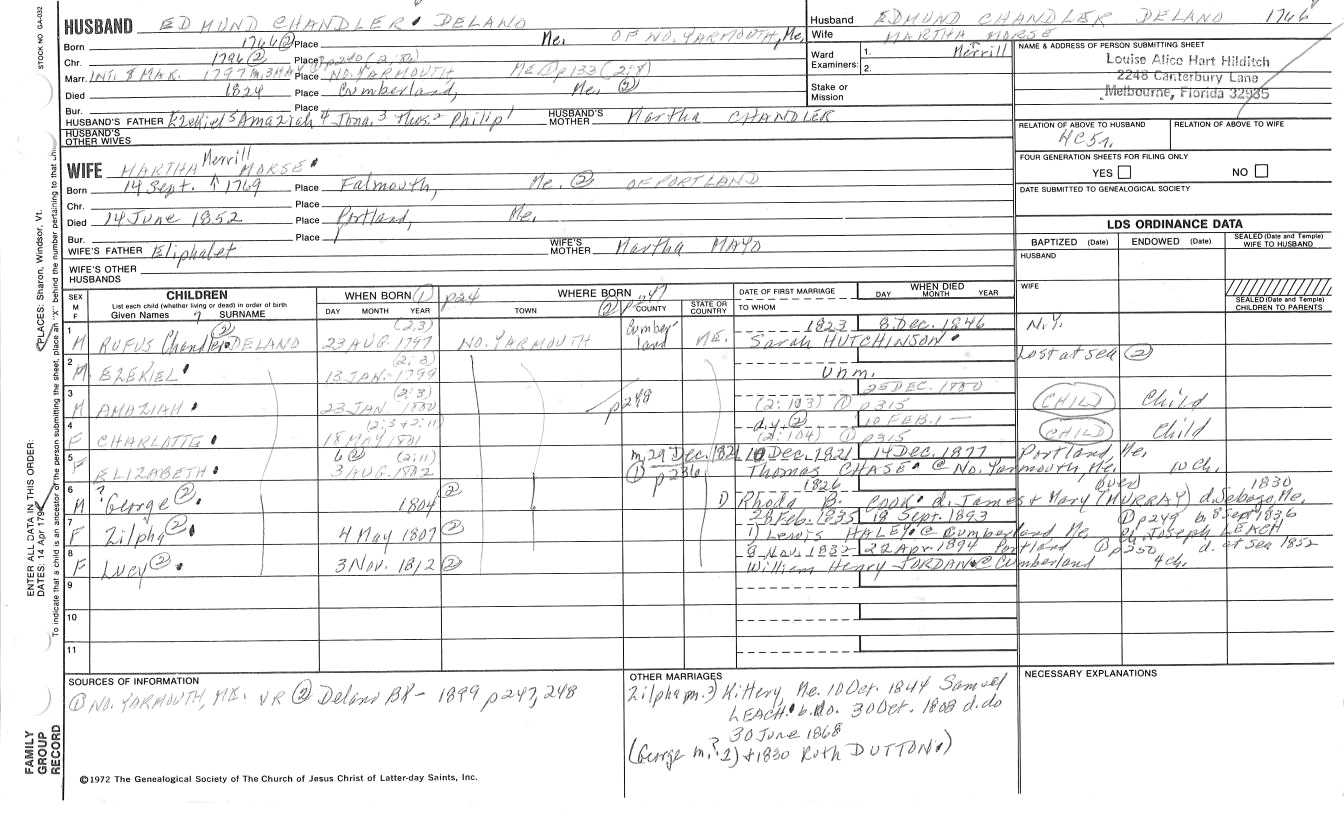 STOCK NO GA-032
HUSBAND EDMUND CHANDLER DELANO
Born 1766 (2) Place Me. OF NO. YARMOUTH, Me.
Chr. 1796 (2) Place
Marr. INT. 8 MAR. 1797 Place NO. YARMOUTH Me. (1) p133 (2:8)
Died 1824 Place Cumberland, Me. (2)
Bur. Place
HUSBAND'S FATHER Ezekiel 5 Amaziah 4 Jona. 3 Thos. 2 Philip 1 HUSBAND'S MOTHER Martha CHANDLER
HUSBAND'S OTHER WIVES
Husband EDMUND CHANDLER DELANO 1766
Wife MARTHA Merrill MORSE
Ward Examiners: 1. 2.
Stake or Mission
NAME & ADDRESS OF PERSON SUBMITTING SHEET
Louise Alice Hart Hilditch
2248 Canterbury Lane
Melbourne, Florida 32935
RELATION OF ABOVE TO HUSBAND RELATION OF ABOVE TO WIFE
FOUR GENERATION SHEETS FOR FILING ONLY
YES NO
DATE SUBMITTED TO GENEALOGICAL SOCIETY
WIFE MARTHA Merrill MORSE
Born 14 Sept. 1769 Place Falmouth, Me. (2) OF PORTLAND
Chr. Place
Died 14 June 1852 Place Portland, Me.
Bur. Place
WIFE'S FATHER Eliphalet WIFE'S MOTHER Martha MAYO
WIFE'S OTHER HUSBANDS
LDS ORDINANCE DATA
BAPTIZED (Date) ENDOWED (Date) SEALED (Date and Temple) WIFE TO HUSBAND
HUSBAND
WIFE
SEALED (Date and Temple) CHILDREN TO PARENTS
SEX M F CHILDREN
List each child (whether living or dead) in order of birth
Given Names SURNAME
WHEN BORN (1) p24
DAY MONTH YEAR
WHERE BORN
TOWN COUNTY STATE OR COUNTRY
DATE OF FIRST MARRIAGE
TO WHOM
WHEN DIED
DAY MONTH YEAR
1 M RUFUS Chandler (2) DELANO 23 AUG. 1797 (2:3) NO. YARMOUTH Cumberland ME. 1823 8 Dec. 1846 N.Y.
Sarah HUTCHINSON
2 M EZEKIEL 13 JAN. 1799 (2:3) Unm. Lost at sea (2)
3 M AMAZIAH 23 JAN 1800 (2:3) p248 25 DEC. 1800 (2:103) (1) p315 CHILD Child
4 F CHARLOTTE 18 MAY 1801 (2:3 + 2:11) d.y. (2) 10 FEB. 1— (2:104) (1) p315 CHILD Child
5 F ELIZABETH 6 (2) 3 AUG. 1802 (2:11) m. 29 Dec. 1821 (1) p236 10 Dec. 1821 14 Dec. 1877 Portland, Me.
Thomas CHASE @ No. Yarmouth, Me. 10 ch.
6 M ? George (2) 1804 (2) 1826 over 1830
1) Rhoda B. COOK d. James + Mary (MURRAY) d. Sebago, Me.
7 F Zilpha (2) 4 May 1807 (2) 28 Feb. 1835 18 Sept. 1893 (1) p249 b. 8 Sept 1836
1) Lewis HALEY @ Cumberland Me. Joseph LEACH
8 F Lucy (2) 3 Nov. 1812 (2) 9 Nov. 1832 22 Apr. 1894 Portland (1) p250 d. at sea 1852
William Henry JORDAN @ Cumberland 4 ch.
9
10
11
SOURCES OF INFORMATION
(1) NO. YARMOUTH, ME. VR (2) Delano BK - 1899 p247, 248
OTHER MARRIAGES
Zilpha m. 2) Kittery, Me. 10 Oct. 1844 Samuel
LEACH b. do. 30 Oct. 1808 d. do
30 June 1868
(George m.? 2) 1830 Ruth DUTTON)
NECESSARY EXPLANATIONS
©1972 The Genealogical Society of The Church of Jesus Christ of Latter-day Saints, Inc.
FAMILY GROUP RECORD
ENTER ALL DATA IN THIS ORDER:
DATES: 14 Apr 179
PLACES: Sharon, Windsor, Vt.
To indicate that a child is an ancestor of the person submitting the sheet, place an "X" behind the number pertaining to that